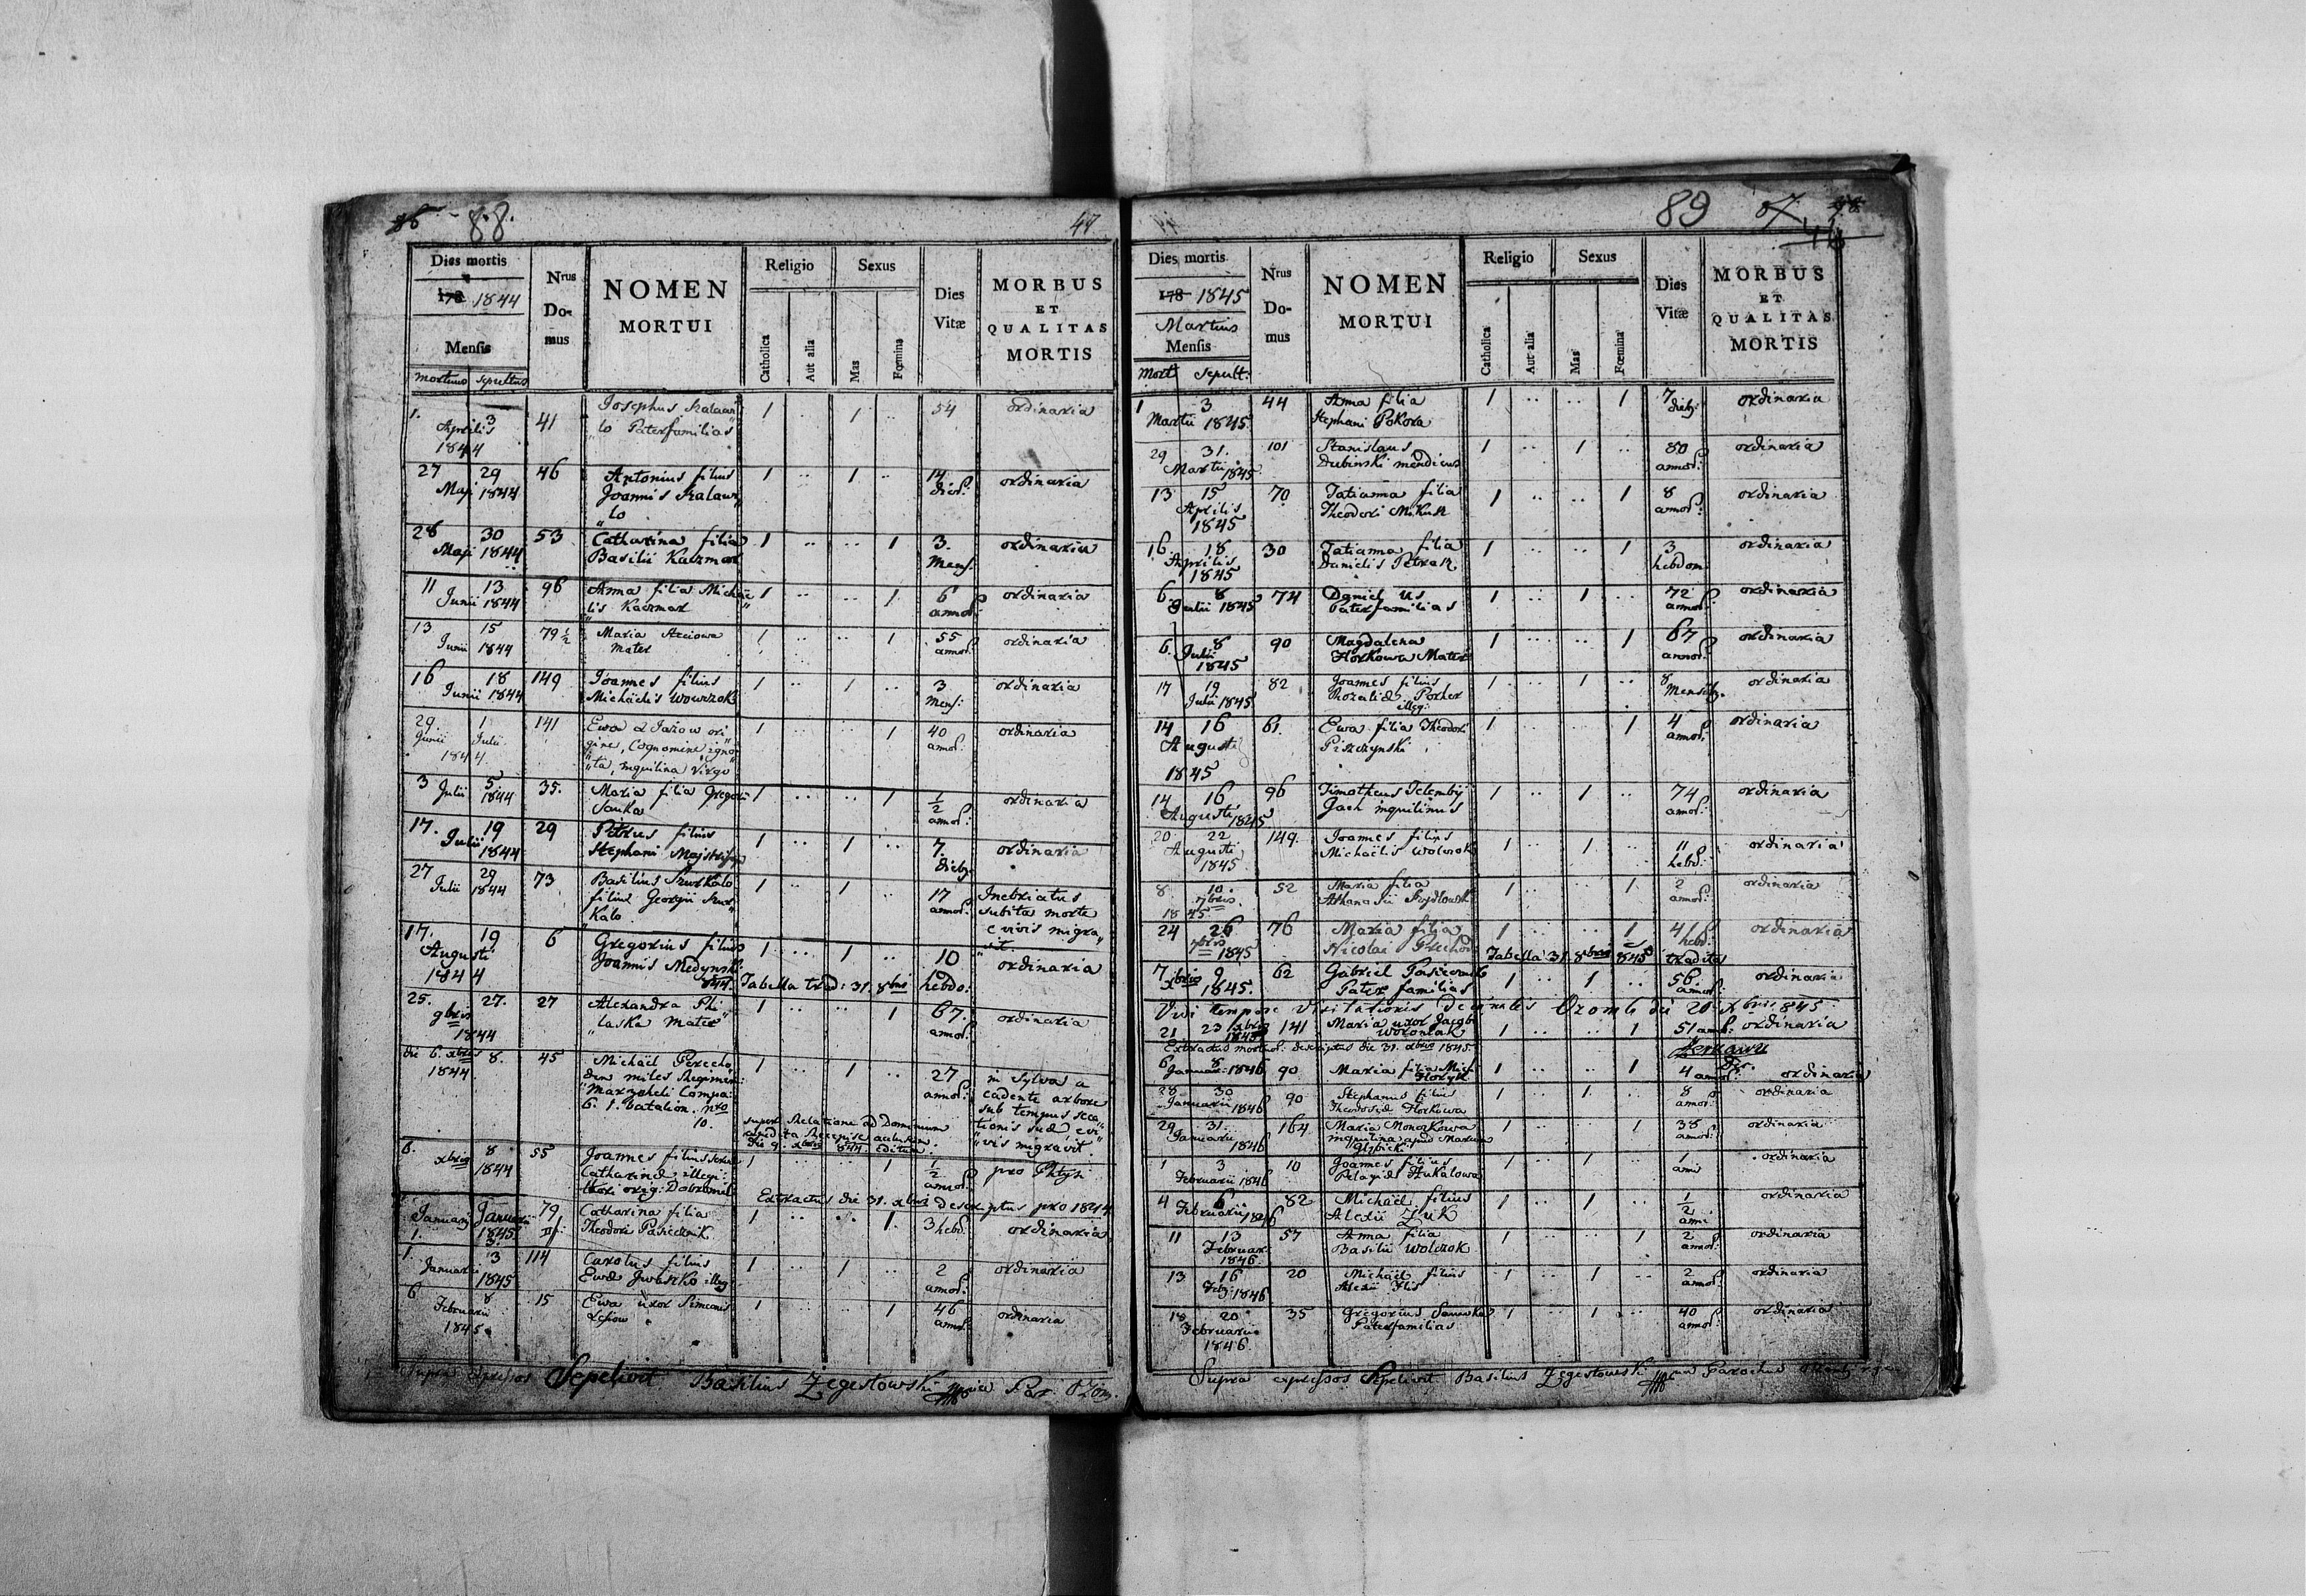 88.
47
Dies mortis
178 1844
Mensis
mortuus sepultus
Nrus Do- mus
NOMEN
MORTUI
Religio
Catholica
Aut alia
Sexus
Mas
Fœmina
Dies Vitæ
MORBUS
ET
QUALITAS
MORTIS
1. 3 41 Josephus Kalaw 1 .. 1 .. 54 ordinaria
Aprilis lo Paterfamilias
1844
27 29 46 Antonius filius 1 .. 1 .. 14 ordinaria
Maji 1844 Joannis Kalaw dier:
lo
28 30 53 Catharina filia 1 .. .. 1 3. ordinaria
Maji 1844 Basilii Kaczmar Mens:
11 13 96 Anna filia Michaë 1 .. .. 1 6 ordinaria
Junii 1844 lis Kaczmar annor:
13 15 79 ½ Maria 1 .. .. 1 55 ordinaria
Junii 1844 Mater annor:
16 18 149 Joannes filius 1 .. 1 .. 3 ordinaria
Junii 1844 Michaëlis Wowczok Mens:
29. 1 141 Ewa ori 1 .. .. 1 40 ordinaria
Junii Julii gine, Cognomine igno annor:
1844 ta, inquilina Virgo
3 Julii 5 1844 35. Maria filia Gregorii 1 .. .. 1 1/2 ordinaria
Sawka annor:
17. 19 29 Petrus filius 1 .. 1 .. 7. ordinaria
Julii 1844 Stephani dieb:
27 29 73 Basilius 1 .. 1 .. 17 Inebriatus
Julii 1844 filius Georgii annor: subita morte
kalo e vivis migra
vit.
17. 19 6 Gregorius filius 1 .. 1 .. 10 ordinaria
Augusti Joannis Medynski hebdo:
1844 Tabella trad: 31. 8bris 844.
25. 27. 27 Alexandra 1 .. .. 1 67. ordinaria
9bris laska Mater annor:
1844
die 6. xbris 8. 45 Michaël 1 .. 1 .. 27 in sylva a
1844 miles Regimen: annor: cadente arbore
Mazuchelli Compa: sub tempus seca
6. 1. batalion. nro tionis suæ e vi
10. vis migravit.
super Relatione ad Dominium
die 9. xbris 844. editum.
6. 8 55 Joannes filius 1 .. .. 1 1/2 pro
xbris 1844 Catharinæ illegi: annor:
thori orig: Dobromil
Extractus die 31. xbris descriptus pro 1844
Januarii Januarii 79 Catharina filia 1 .. .. 1. 3 hebd: ordinaria
1. 1845 3. Theodori Pasiecznik
1. 3 114 Carolus filius 1 .. 1 .. 2 ordinaria
Januarii 1845 Ewæ Iwaszko illeg: annor:
6 8 15 Ewa uxor Simeonis 1 .. .. 1 46 ordinaria
Februarii annor:
1845
Supra expressos Sepelivit Basilius Zegestowski Par.
89
Dies mortis
178 1845
Martius
Mensis
Mort: Sepult:
Nrus Do- mus
NOMEN
MORTUI
Religio
Catholica
Aut alia
Sexus
Mas
Fœmina
Dies Vitæ
MORBUS
ET
QUALITAS
MORTIS
1 3 44 Anna filia 1 .. .. 1 7 ordinaria
Martii 1845 Stephani Pokora dieb:
29 31. 101 Stanislaus 1 .. 1 .. 80 ordinaria
Martii 1845 Dubinski mendicus annor:
13 15 70 Tatianna filia 1 .. .. 1 8 ordinaria
Aprilis Theodori annor:
1845
16. 18 30 Tatianna filia 1 .. .. 1 3 ordinaria
Aprilis Danielis hebdom
1845
6. 8 74 Daniel Us 1 .. 1 .. 72 ordinaria
Julii 1845 Paterfamilias annor:
6. 8 90 Magdalena 1 .. .. 1 67 ordinaria
Julii Horkowa Mater annor:
1845
17 19 82 Joannes filius 1 .. 1 .. 8 ordinaria
Julii 1845 Rozaliæ Porher Mensib:
illeg:
14 16 61. Ewa filia Theodori 1 .. .. 1 4 ordinaria
Augusti Piszczynski annor:
1845
14 16 96 Timotheus 1 .. 1 .. 74 ordinaria
Augusti 1845 Jach inquilinus annor:
20 22 149. Joannes filius 1 .. 1 .. 11 ordinaria
Augusti Michaëlis Wolczok hebd:
1845
8 10. 52 Maria filia 1 .. .. 1 2 ordinaria
7bris. Athanasii annor:
1845
24 26 76 Maria filia 1 .. .. 1 ordinaria
7bris 1845 Nicolai hebd:
Tabella 31. 8bris 1845 tradita
7 9 62 Gabriel Pasiecznik 1 .. 1 .. 56. ordinaria
xbris 1845. Paterfamilias annor:
Vidi tempore Visitationis Decanales die 20 xbris 845
21 23 xbris 1845 141 Maria uxor Jacobi 1 .. .. 1 51 annor: ordinaria
Woroniak
Extractus mortuor: descriptus die 31. xbris 1845.
6 8 90 Maria filia Mich: 1 .. .. 1 4 annor: ordinaria
Januarii 1846 Horyk
28 30 90 Stephanus filius 1 .. 1 .. 8 ordinaria
Januarii 1846 Theodosiæ Horkowa annor:
29 31. 164 Maria Monorkowa 1 .. .. 1 38 ordinaria
Januarii inquilina apud Marcum annor:
1846
1 3 10 Joannes filius 1 .. 1 .. 1 ordinaria
Februarii 1846 Pelagiæ Hukalowa anni
4 6 82 Michaël filius 1 .. 1 .. 1/2 ordinaria
Februarii 1846 Alexii Zuk anni
11 13 57 Anna filia 1 .. .. 1 2 ordinaria
Februar: Basilii Wolczok annor:
1846.
13 16 20 Michaël filius 1 .. 1 .. 2 ordinaria
Feb: 1846 Alexii Hlis annor:
18 20 35 Gregorius Sawka 1 .. 1 .. 40 ordinaria
Februarii Paterfamilias annor:
1846
Supra expressos Sepelivit Basilius Zegestowski Parochus